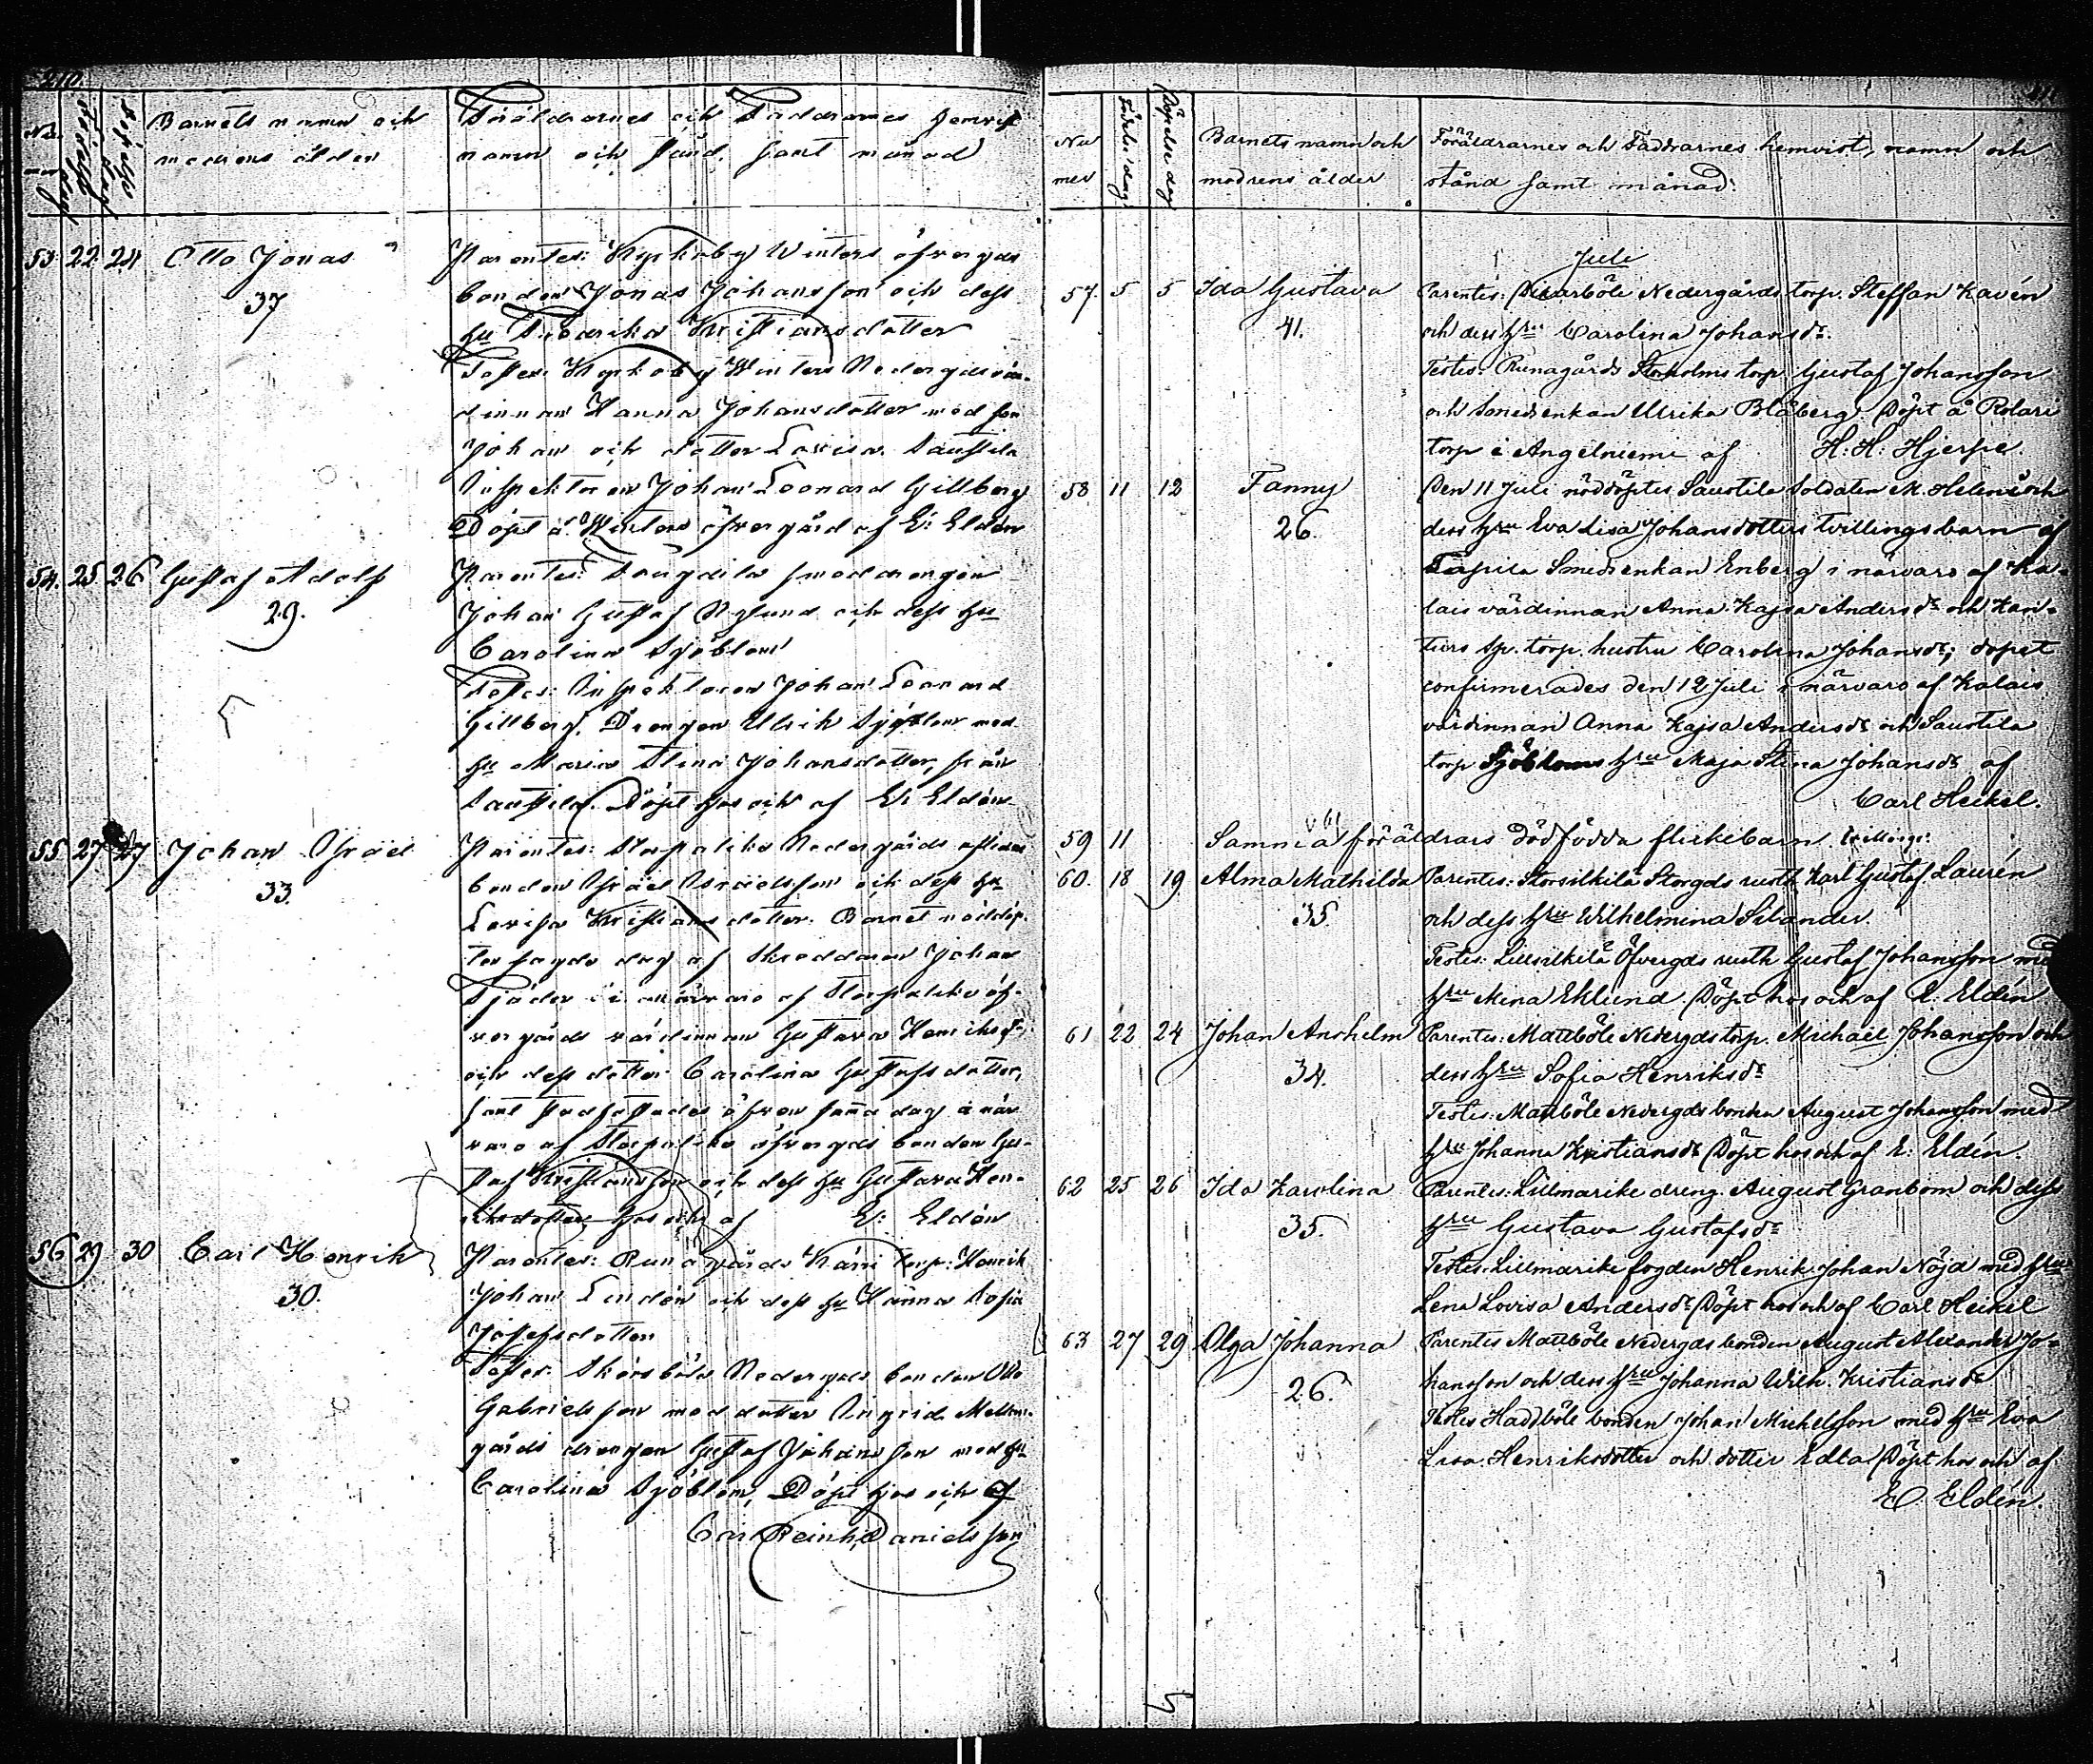 210.
Barnets namn och
modrens ålder
Föräldrarnes och Faddrarnes hemvist
namn och stånd samt månad
53 22 24 Otto Jonas
37
Parentes: Kyrkoby Winters öfvergds
bonden Jonas Johansson och dess
hu Fredrika Kristiansdotter
Testes: Kyrkoby Winters Nedergds vär-
dinnan Hanna Johansdotter med son
Johan och dotter Lovisa. Saustila
Inspektoren Johan Leonard Gillberg
Döpt å Winters öfvergård af E: Eldén
54. 25 26 Gustaf Adolf
29.
Parentes: drengen
Johan Gustaf Nylund och dess hu
Carolina Sjöblom
Testes: Inspektoren Johan Leonard
Gillberg, Drengen Ulrik Sjöblom med
hu Maria Stina Johansdotter, från
Saustila. Döpt hos och af E: Eldén
55 27 27 Johan Israel
33.
Parentes: Storpaliko Nedergårds
bonden Israel Israelsson och dess hu
Lovisa Kristiansdotter. Barnet nöddöp-
tes sagde dag af Skreddaren Johan
Sjöder i närvaro af Storpaliko öf-
vergårds värdinnan Gustava Henriksdr
och dess dotter Carolina Gustafsdotter,
samt stadfästades öfven samma dag i när-
varo af Storpaliko öfvergds bonden Gu-
staf Kristiansson och dess hu Gustava Hen-
riksdotter hos och af E: Eldén
56 29 30 Carl Henrik
30.
Parentes: Runagårds Kärri torp: Henrik
Johan Lindén och dess hu Hanna Sofia
Josefsdotter
Testes: Skinnböle Nedergds bonden Otto
Gabrielsson med dotter Ingrid. Mellan-
gårds drengen Gustaf Johansson med hu
Carolina Sjöblom, Döpt hos och af
Carl Reinh. Danielsson
Nu
mer
Födelse dag
Döpelse dag
Barnets namn och
modrens ålder
Föräldrarnes och Faddrarnes hemvist, namn och
stånd samt månad:
Juli
57. 5 5 Ida Gustava
41.
Parentes: Nedergårds torp. Steffan Kavén
och dess hru Carolina Johansdr.
Testes: Runagårds Storholms torp. Gustaf Johansson
och Smedenkan Ulrika Blåberg. Döpt å Rolari
torp i Angelniemi af H: H: Hjerpe.
58 11 12 Fanny
26.
Den 11 Juli nöddöptes Saustila Soldaten M. Helenii och
dess hru Eva Lisa Johansdotters tvillingsbarn af
Tapila Smedsenkan Enberg i närvaro af Ka-
lais värdinnan Anna Kajsa Andersdr och Kan-
tiers torp. hustru Carolina Johansdr; dopet
confirmerades den 12 Juli i närvaro af Kalais
värdinnan Anna Kajsa Andersdr och Saustila
torp Sjöbloms hru Maja Stina Johansdr af
Carl Heikel.
59 11 Samma föräldrars dödfödda flickebarn. tvillings:
60. 18 19 Alma Mathilda
35.
Parentes: Storsilkilä Storgds rusth. Karl Gustaf Laurén
och dess hru Wilhelmina Silander.
Testes: Lillsilkilä Öfvergds rusth Gustaf Johansson med
hru Mina Eklund. Döpt hos och af E: Eldén
61 22 24 Johan Anshelm
34.
Parentes: Mattböle Nedergds torp. Michael Johansson och
dess hru Sofia Henriksdr
Testes: Mattböle Nedergds bonden August Johansson med
hru Johanna Kristiansdr Döpt hos och af E: Eldén.
62 25 26 Ida Karolina
35.
Parentes: Lillmarike dreng. August Granbom och dess
hru Gustava Gustafsdr
Testes: Lillmarike fogden Henrik Johan Nöjd med hru
Lena Lovisa Andersdr Döpt hos och af Carl Heikel
63 27 29 Olga Johanna
26.
Parentes Mattböle Nedergds bonden August Alexander Jo-
hansson och dess hru Johanna Wilh. Kristiansdr
Testes Haddböle bonden Johan Michelsson med hru Eva
Lisa Henriksdotter och dotter Edla Döpt hos och af
E. Eldén